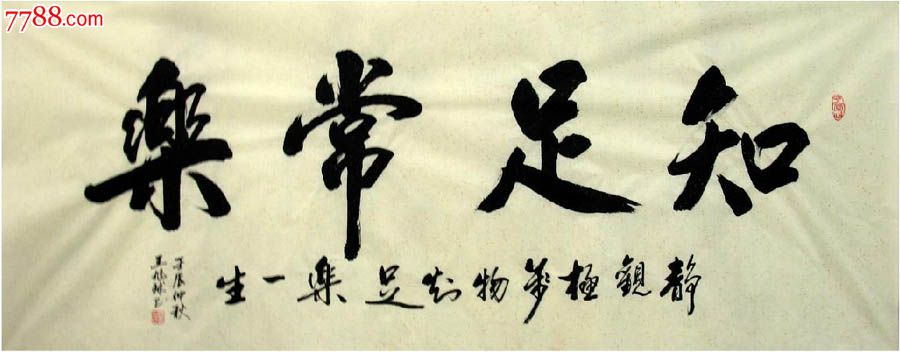 7788.com
知足常樂
靜觀極萬物知足樂一生
壬辰仲秋